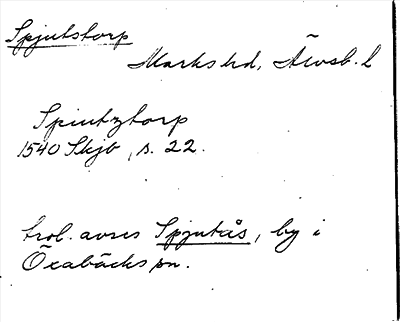 Spjutstorp
Marks hd, Älvsb. l
Spiutztorp
1540 Skjb, s. 22.
trol. avses Spjutås, by i
Öxabäcks sn.